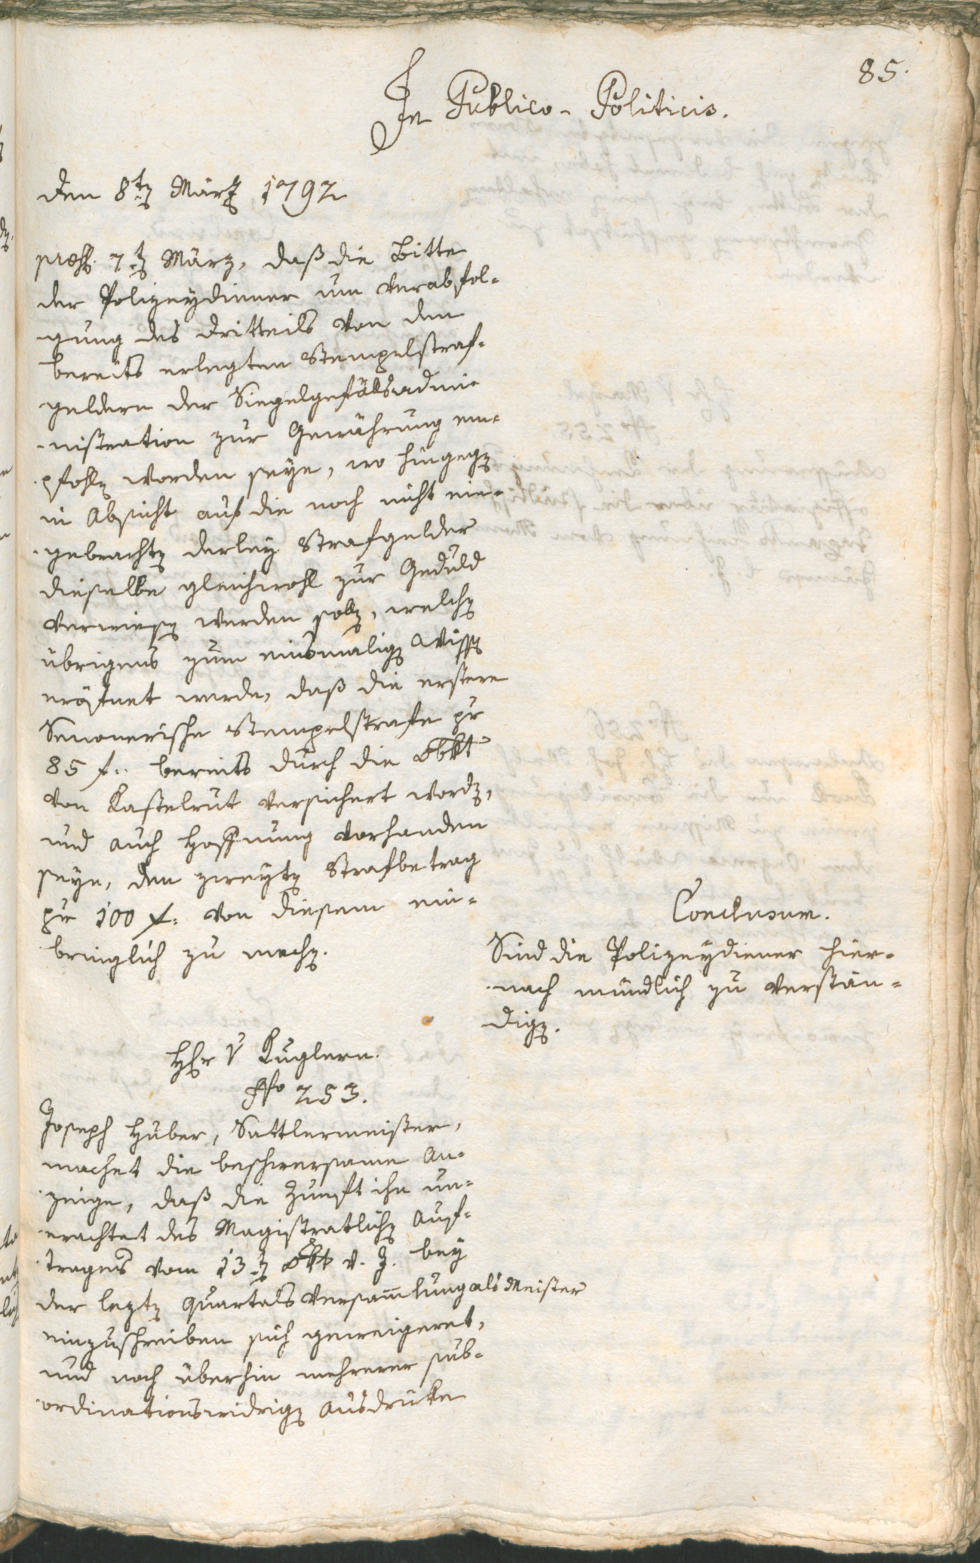 85.
In Publico-Politicis.
den 8t. März 1792
præs. 7t. März, daß die Bitte
der Polizeydiener um Verabfol-
gung des Dritteils von den
bereits erlegten Stempelstraf-
geldern der Siegelgefällsadmi-
nistration zur Gewährung em-
pfohlen worden seye, wo hingegen
in Absicht auf die noch nicht ein-
gebrachten derley Strafgelder
dieselbe gleichwohl zur Geduld
verwiesen werden sollen, welchen
übrigens zum einsmaligen Wissen
eröfnet werde, daß die erstere
Senonerische Stempelstrafe pr
85 f. bereits durch die Obkt
von Kastelrut versichert worden,
und auch Hoffnung vorhanden
seye, den zweyten Strafbetrag
pr 100 f. von diesem ein-
bringlich zu machen.
Conclusum.
Sind die Polizeydiener hier-
nach mündlich zu verstän-
digen.
Hr v Kuglern.
No 253.
Joseph Huber, Sattlermeister,
machet die beschwersame An-
zeige, daß die Zunft ihn un-
erachtet des Magistratlichen Auf-
trages vom 13t. Okt v. J. bey
der lezten Quartals Versam̅lung als Meister
einzuschreiben sich geweigeret,
und noch überhin mehrerer sub-
ordinationswidrigen Ausdrücke